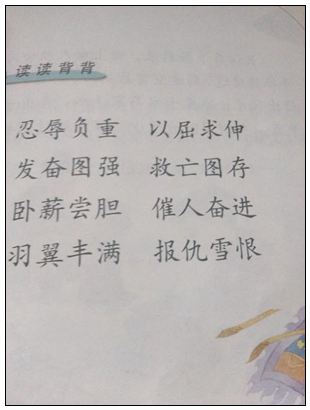 读读背背
忍辱负重 以屈求伸
发奋图强 救亡图存
卧薪尝胆 催人奋进
羽翼丰满 报仇雪恨